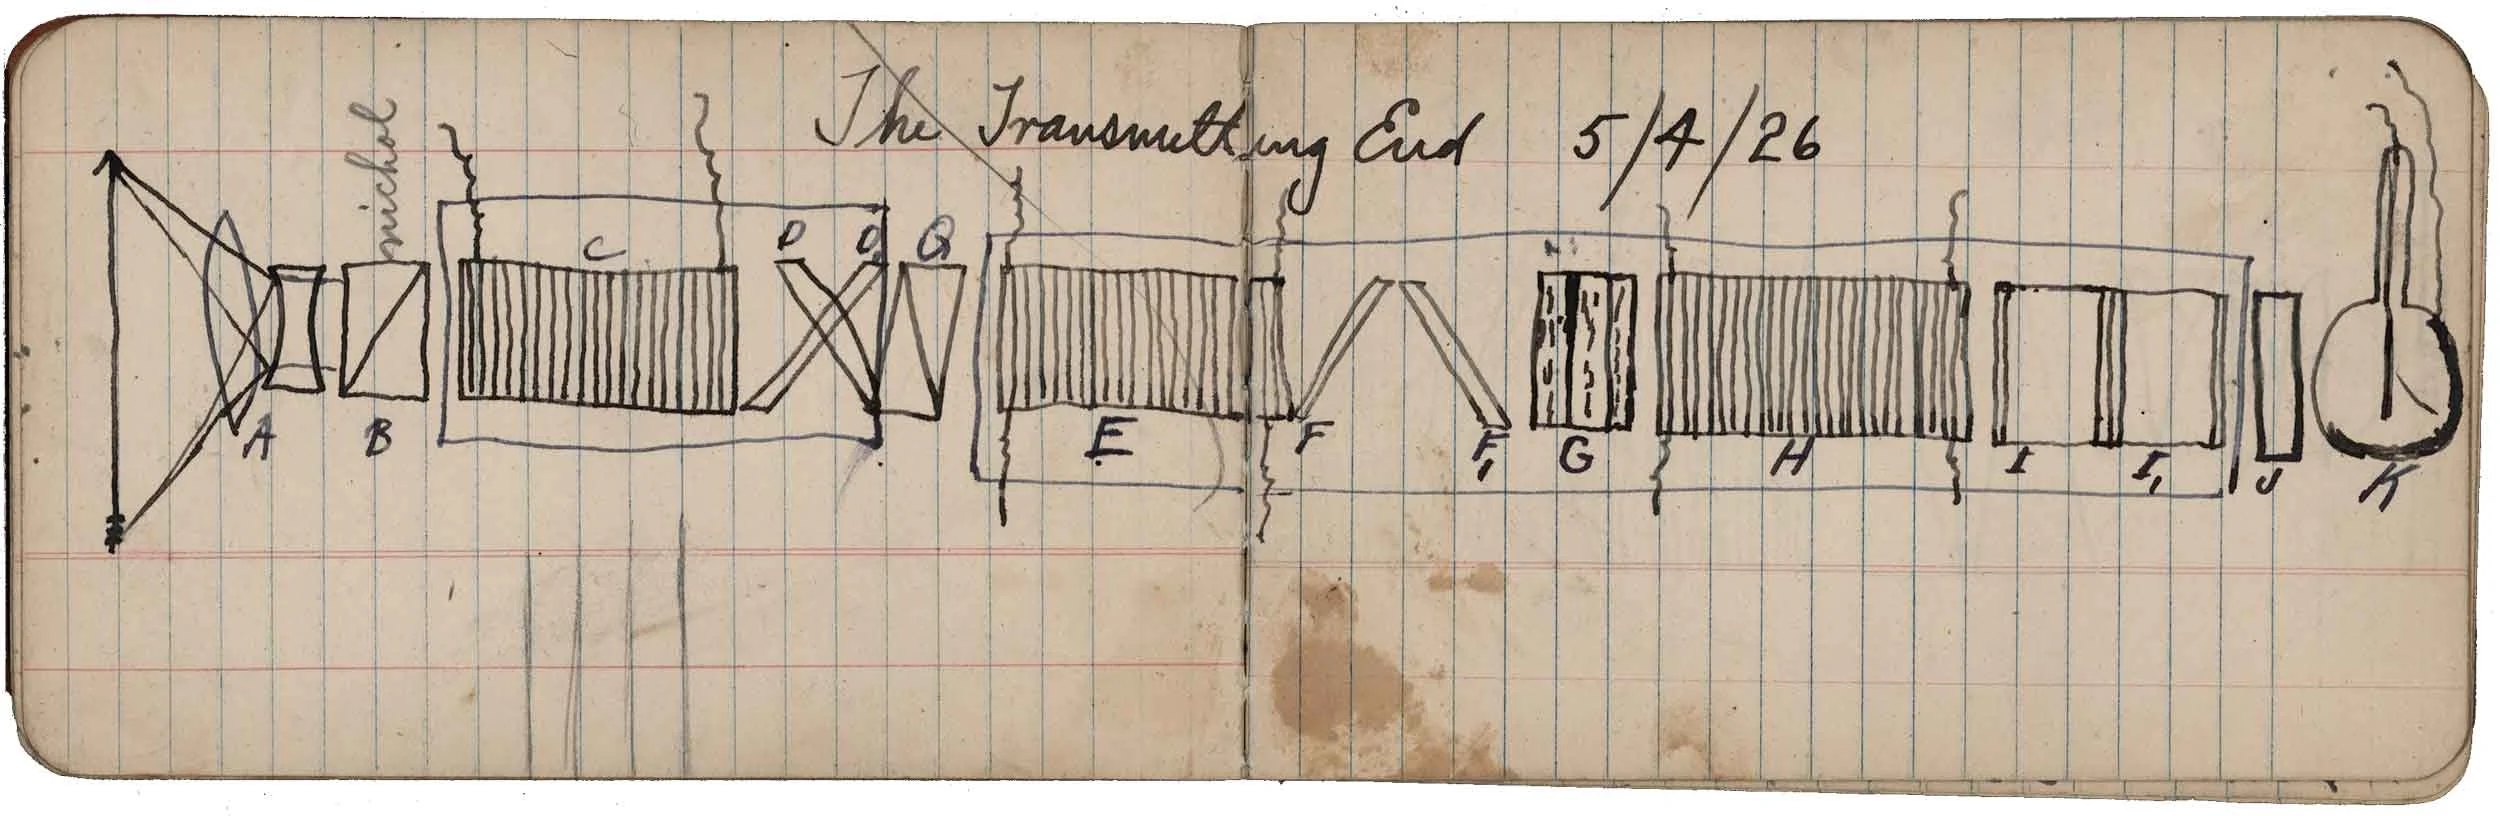 The Transmitting End 5/4/26
nichol
C D D, Q
A B E F F, G H I I, J K